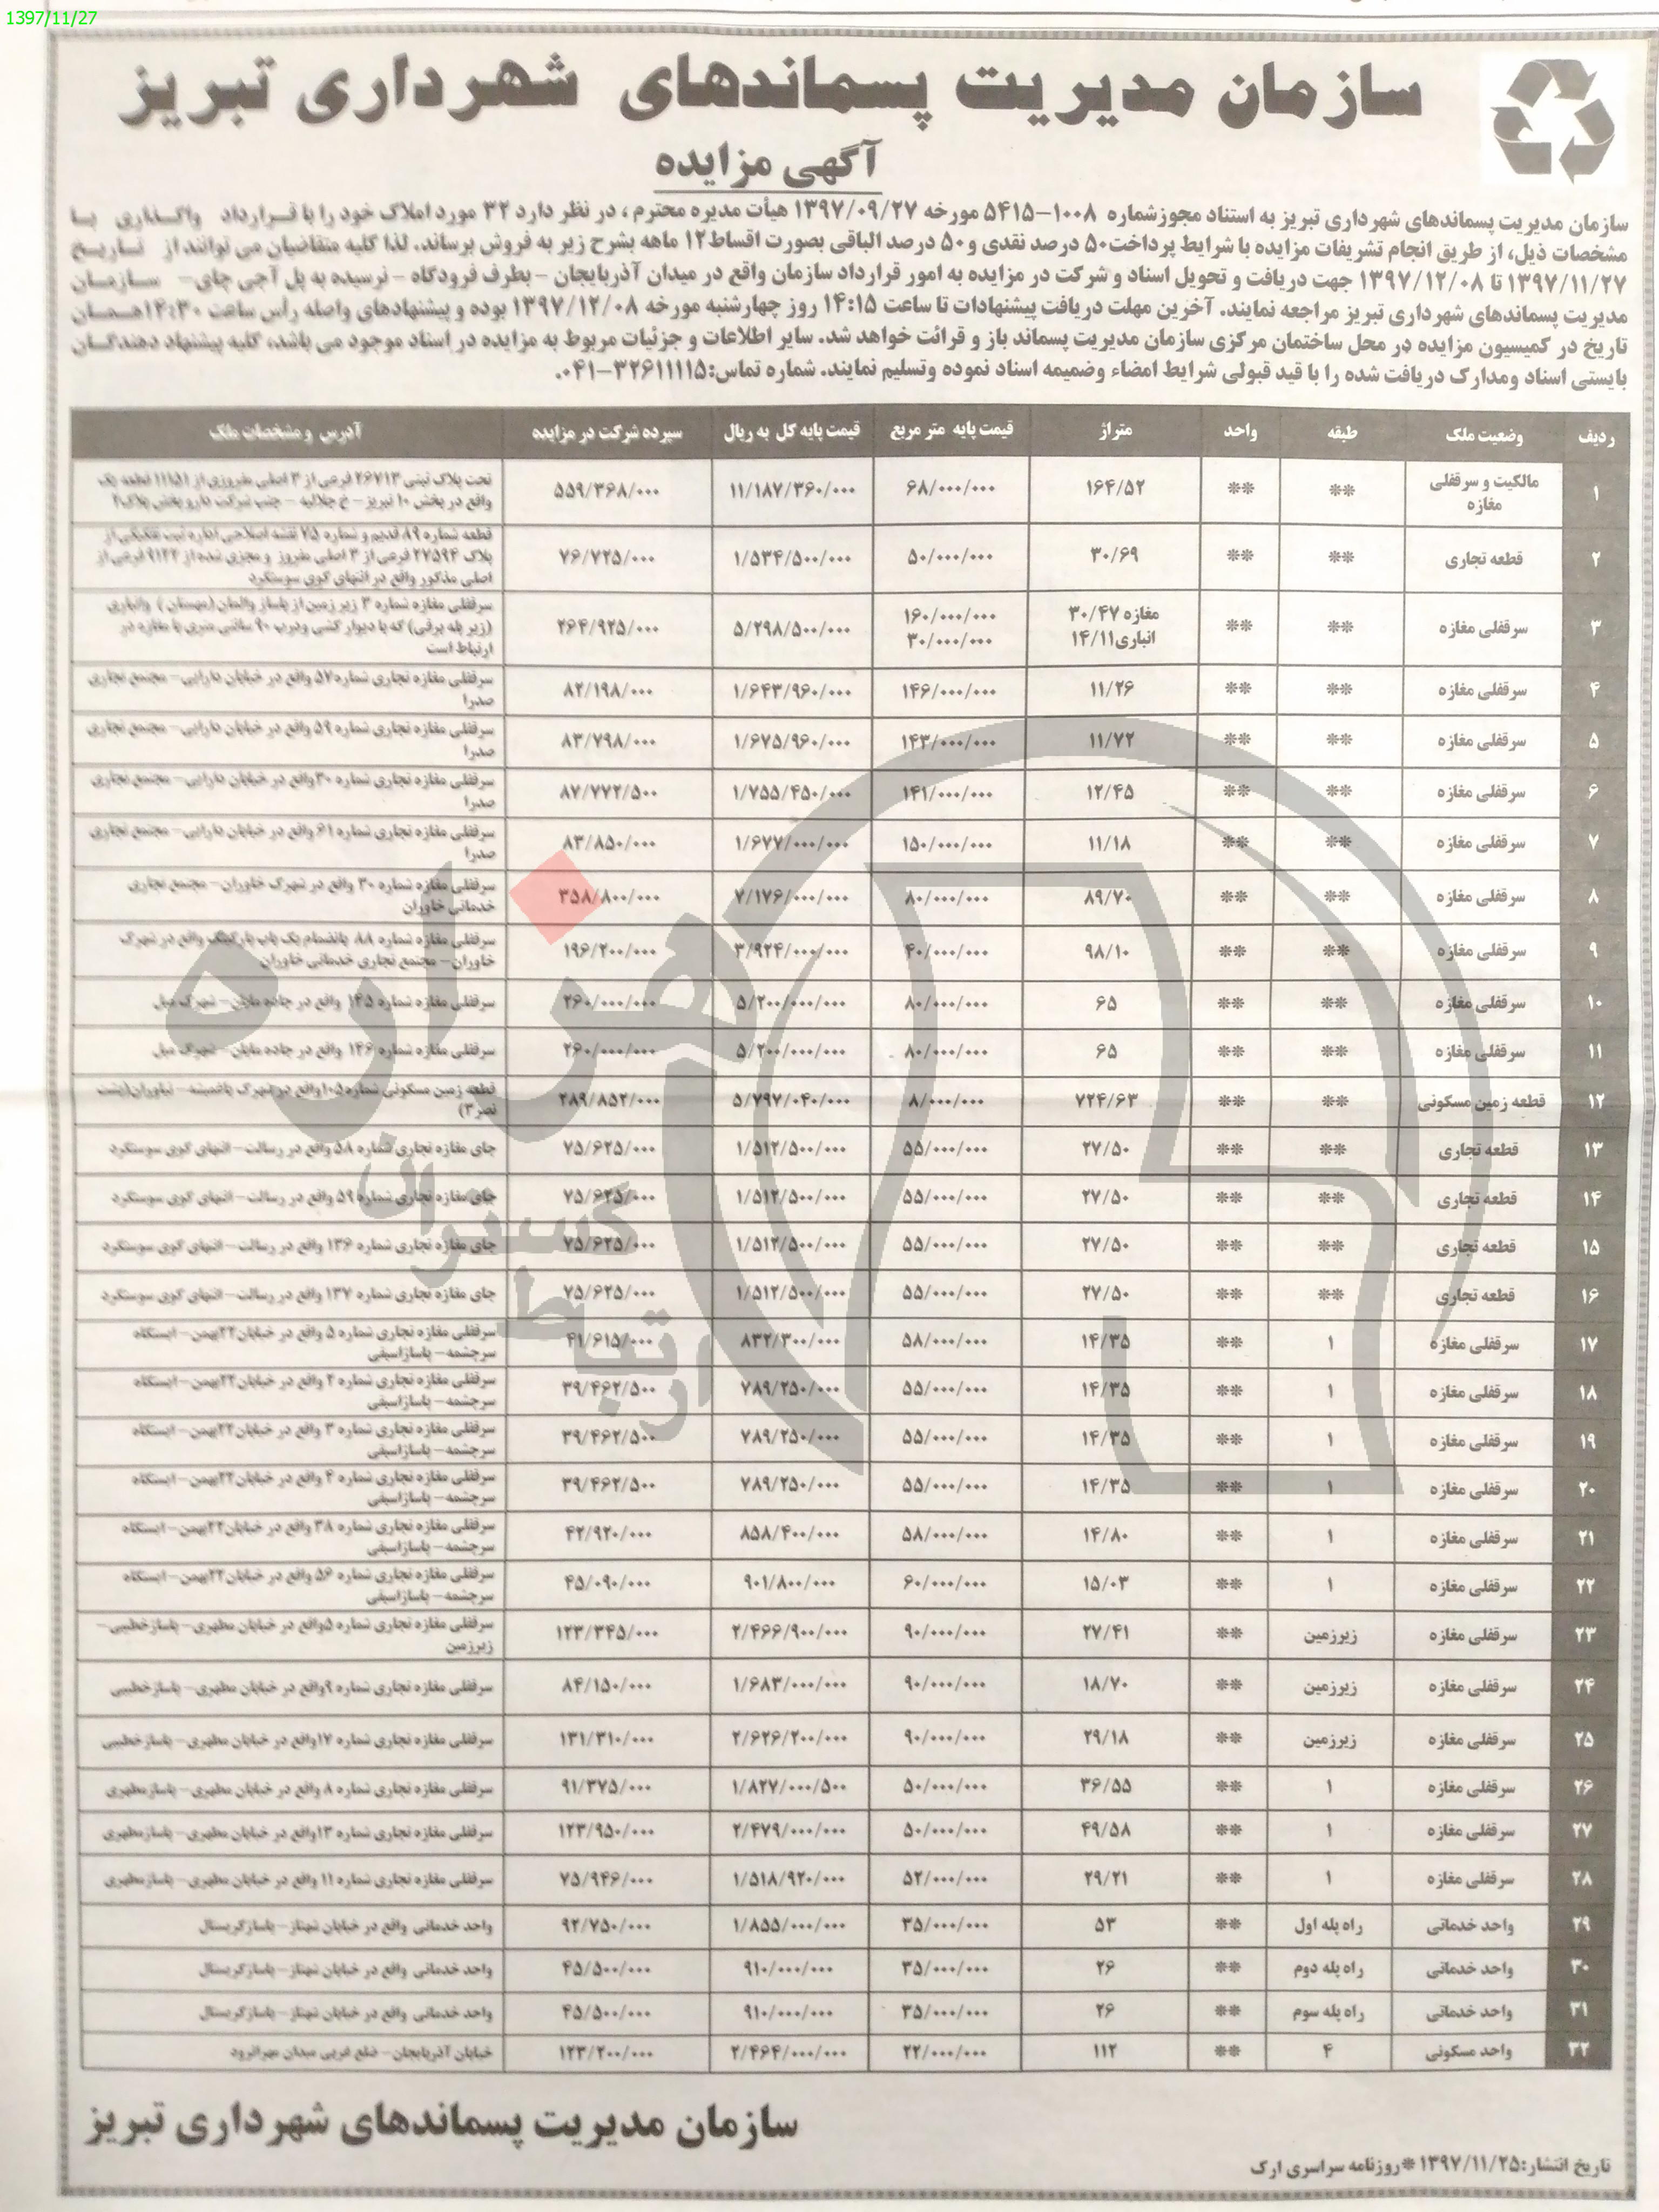 1397/11/27
سازمان مدیریت پسماندهای شهرداری تبریز
آگهی مزایده
سازمان مدیریت پسماندهای شهرداری تبریز به استناد مجوزشماره ۱۰۰۸-۵۴۱۵ مورخه ۱۳۹۷/۰۹/۲۷ هیأت مدیره محترم ، در نظر دارد ۳۲ مورد املاک خود را با قرارداد واگذاری با
مشخصات ذیل، از طریق انجام تشریفات مزایده با شرایط پرداخت۵۰ درصد نقدی و۵۰ درصد الباقی بصورت اقساط۱۲ ماهه بشرح زیر به فروش برساند. لذا کلیه متقاضیان می توانند از تاریخ
۱۳۹۷/۱۱/۲۷ تا ۱۳۹۷/۱۲/۰۸ جهت دریافت و تحویل اسناد و شرکت در مزایده به امور قرارداد سازمان واقع در میدان آذربایجان - بطرف فرودگاه - نرسیده به پل آجی چای- سازمان
مدیریت پسماندهای شهرداری تبریز مراجعه نمایند. آخرین مهلت دریافت پیشنهادات تا ساعت ۱۴:۱۵ روز چهارشنبه مورخه ۱۳۹۷/۱۲/۰۸ بوده و پیشنهادهای واصله رأس ساعت ۱۴:۳۰همان
تاریخ در کمیسیون مزایده در محل ساختمان مرکزی سازمان مدیریت پسماند باز و قرائت خواهد شد. سایر اطلاعات و جزئیات مربوط به مزایده در اسناد موجود می باشد، کلیه پیشنهاد دهندگان
بایستی اسناد ومدارک دریافت شده را با قید قبولی شرایط امضاء وضمیمه اسناد نموده وتسلیم نمایند. شماره تماس:۳۲۶۱۱۱۱۵-۰۴۱.
ردیف وضعیت ملک طبقه واحد متراژ قیمت پایه متر مربع قیمت پایه کل به ریال سپرده شرکت در مزایده آدرس و مشخصات ملک
۱ مالکیت و سرقفلی مغازه ** ** ۱۶۴/۵۲ ۶۸/۰۰۰/۰۰۰ ۱۱/۱۸۷/۳۶۰/۰۰۰ ۵۵۹/۳۶۸/۰۰۰ تحت پلاک ثبتی ۲۶۷۱۳ فرعی از ۳ اصلی مفروزی از ۱۱۱۵۱ قطعه یک
واقع در بخش ۱۰ تبریز - خ جلالیه - جنب شرکت دارو پخش پلاک۲
۲ قطعه تجاری ** ** ۳۰/۶۹ ۵۰/۰۰۰/۰۰۰ ۱/۵۳۴/۵۰۰/۰۰۰ ۷۶/۷۲۵/۰۰۰ قطعه شماره ۸۹ قدیم و شماره ۲۵ نقشه اصلاحی اداره ثبت تفکیکی از
پلاک ۲۷۵۹۴ فرعی از ۳ اصلی مفروز و مجزی شده از ۹۱۲۲ فرعی از
اصلی مذکور واقع در انتهای کوی سوسنگرد
۳ سرقفلی مغازه ** ** مغازه ۳۰/۴۷ ۱۶۰/۰۰۰/۰۰۰ ۵/۲۹۸/۵۰۰/۰۰۰ ۲۶۴/۹۲۵/۰۰۰ سرقفلی مغازه شماره ۳ زیر زمین از پاساژ والمان (مهستان ) وانباری
انباری۱۴/۱۱ ۳۰/۰۰۰/۰۰۰ (زیر پله برقی) که با دیوار کشی ودرب ۹۰ سانتی متری با مغازه در
ارتباط است
۴ سرقفلی مغازه ** ** ۱۱/۲۶ ۱۴۶/۰۰۰/۰۰۰ ۱/۶۴۳/۹۶۰/۰۰۰ ۸۲/۱۹۸/۰۰۰ سرقفلی مغازه تجاری شماره۵۷ واقع در خیابان دارایی- مجتمع تجاری
صدرا
۵ سرقفلی مغازه ** ** ۱۱/۷۲ ۱۴۳/۰۰۰/۰۰۰ ۱/۶۷۵/۹۶۰/۰۰۰ ۸۳/۷۹۸/۰۰۰ سرقفلی مغازه تجاری شماره ۵۹ واقع در خیابان دارایی- مجتمع تجاری
صدرا
۶ سرقفلی مغازه ** ** ۱۲/۴۵ ۱۴۱/۰۰۰/۰۰۰ ۱/۷۵۵/۴۵۰/۰۰۰ ۸۷/۷۷۲/۵۰۰ سرقفلی مغازه تجاری شماره ۳۰واقع در خیابان دارایی- مجتمع تجاری
صدرا
۷ سرقفلی مغازه ** ** ۱۱/۱۸ ۱۵۰/۰۰۰/۰۰۰ ۱/۶۷۷/۰۰۰/۰۰۰ ۸۳/۸۵۰/۰۰۰ سرقفلی مغازه تجاری شماره ۶۱ واقع در خیابان دارایی- مجتمع تجاری
صدرا
۸ سرقفلی مغازه ** ** ۸۹/۷۰ ۸۰/۰۰۰/۰۰۰ ۷/۱۷۶/۰۰۰/۰۰۰ ۳۵۸/۸۰۰/۰۰۰ سرقفلی مغازه شماره ۳۰ واقع در شهرک خاوران- مجتمع تجاری
خدماتی خاوران
۹ سرقفلی مغازه ** ** ۹۸/۱۰ ۴۰/۰۰۰/۰۰۰ ۳/۹۲۴/۰۰۰/۰۰۰ ۱۹۶/۲۰۰/۰۰۰ سرقفلی مغازه شماره ۸۸ بانضمام یک باب پارکینگ واقع در شهرک
خاوران- مجتمع تجاری خدماتی خاوران
۱۰ سرقفلی مغازه ** ** ۶۵ ۸۰/۰۰۰/۰۰۰ ۵/۲۰۰/۰۰۰/۰۰۰ ۲۶۰/۰۰۰/۰۰۰ سرقفلی مغازه شماره ۱۴۵ واقع در جاده مایان- شهرک مبل
۱۱ سرقفلی مغازه ** ** ۶۵ ۸۰/۰۰۰/۰۰۰ ۵/۲۰۰/۰۰۰/۰۰۰ ۲۶۰/۰۰۰/۰۰۰ سرقفلی مغازه شماره ۱۴۶ واقع در جاده مایان- شهرک مبل
۱۲ قطعه زمین مسکونی ** ** ۷۲۴/۶۳ ۸/۰۰۰/۰۰۰ ۵/۷۹۷/۰۴۰/۰۰۰ ۲۸۹/۸۵۲/۰۰۰ قطعه زمین مسکونی شماره۱۰۵واقع در شهرک باغمیشه- نیاوران(پشت
نصر۳)
۱۳ قطعه تجاری ** ** ۲۷/۵۰ ۵۵/۰۰۰/۰۰۰ ۱/۵۱۲/۵۰۰/۰۰۰ ۷۵/۶۲۵/۰۰۰ جای مغازه تجاری شماره ۵۸ واقع در رسالت- انتهای کوی سوسنگرد
۱۴ قطعه تجاری ** ** ۲۷/۵۰ ۵۵/۰۰۰/۰۰۰ ۱/۵۱۲/۵۰۰/۰۰۰ ۷۵/۶۲۵/۰۰۰ جای مغازه تجاری شماره ۵۹ واقع در رسالت- انتهای کوی سوسنگرد
۱۵ قطعه تجاری ** ** ۲۷/۵۰ ۵۵/۰۰۰/۰۰۰ ۱/۵۱۲/۵۰۰/۰۰۰ ۷۵/۶۲۵/۰۰۰ جای مغازه تجاری شماره ۱۳۶ واقع در رسالت- انتهای کوی سوسنگرد
۱۶ قطعه تجاری ** ** ۲۷/۵۰ ۵۵/۰۰۰/۰۰۰ ۱/۵۱۲/۵۰۰/۰۰۰ ۷۵/۶۲۵/۰۰۰ جای مغازه تجاری شماره ۱۳۷ واقع در رسالت- انتهای کوی سوسنگرد
۱۷ سرقفلی مغازه ۱ ** ۱۴/۳۵ ۵۸/۰۰۰/۰۰۰ ۸۳۲/۳۰۰/۰۰۰ ۴۱/۶۱۵/۰۰۰ سرقفلی مغازه تجاری شماره ۵ واقع در خیابان۲۲بهمن- ایستگاه
سرچشمه- پاساژاسیفی
۱۸ سرقفلی مغازه ۱ ** ۱۴/۳۵ ۵۵/۰۰۰/۰۰۰ ۷۸۹/۲۵۰/۰۰۰ ۳۹/۴۶۲/۵۰۰ سرقفلی مغازه تجاری شماره ۲ واقع در خیابان۲۲بهمن- ایستگاه
سرچشمه- پاساژاسیفی
۱۹ سرقفلی مغازه ۱ ** ۱۴/۳۵ ۵۵/۰۰۰/۰۰۰ ۷۸۹/۲۵۰/۰۰۰ ۳۹/۴۶۲/۵۰۰ سرقفلی مغازه تجاری شماره ۳ واقع در خیابان۲۲بهمن- ایستگاه
سرچشمه- پاساژاسیفی
۲۰ سرقفلی مغازه ۱ ** ۱۴/۳۵ ۵۵/۰۰۰/۰۰۰ ۷۸۹/۲۵۰/۰۰۰ ۳۹/۴۶۲/۵۰۰ سرقفلی مغازه تجاری شماره ۴ واقع در خیابان۲۲بهمن- ایستگاه
سرچشمه- پاساژاسیفی
۲۱ سرقفلی مغازه ۱ ** ۱۴/۸۰ ۵۸/۰۰۰/۰۰۰ ۸۵۸/۴۰۰/۰۰۰ ۴۲/۹۲۰/۰۰۰ سرقفلی مغازه تجاری شماره ۳۸ واقع در خیابان۲۲بهمن- ایستگاه
سرچشمه- پاساژاسیفی
۲۲ سرقفلی مغازه ۱ ** ۱۵/۰۳ ۶۰/۰۰۰/۰۰۰ ۹۰۱/۸۰۰/۰۰۰ ۴۵/۰۹۰/۰۰۰ سرقفلی مغازه تجاری شماره ۵۶ واقع در خیابان۲۲بهمن- ایستگاه
سرچشمه- پاساژاسیفی
۲۳ سرقفلی مغازه زیرزمین ** ۲۷/۴۱ ۹۰/۰۰۰/۰۰۰ ۲/۴۶۶/۹۰۰/۰۰۰ ۱۲۳/۳۴۵/۰۰۰ سرقفلی مغازه تجاری شماره ۵واقع در خیابان مطهری- پاساژخطیبی-
زیرزمین
۲۴ سرقفلی مغازه زیرزمین ** ۱۸/۷۰ ۹۰/۰۰۰/۰۰۰ ۱/۶۸۳/۰۰۰/۰۰۰ ۸۴/۱۵۰/۰۰۰ سرقفلی مغازه تجاری شماره ۹واقع در خیابان مطهری- پاساژخطیبی
۲۵ سرقفلی مغازه زیرزمین ** ۲۹/۱۸ ۹۰/۰۰۰/۰۰۰ ۲/۶۲۶/۲۰۰/۰۰۰ ۱۳۱/۳۱۰/۰۰۰ سرقفلی مغازه تجاری شماره ۱۷واقع در خیابان مطهری- پاساژخطیبی
۲۶ سرقفلی مغازه ۱ ** ۳۶/۵۵ ۵۰/۰۰۰/۰۰۰ ۱/۸۲۷/۰۰۰/۵۰۰ ۹۱/۳۷۵/۰۰۰ سرقفلی مغازه تجاری شماره ۸ واقع در خیابان مطهری- پاساژمطهری
۲۷ سرقفلی مغازه ۱ ** ۴۹/۵۸ ۵۰/۰۰۰/۰۰۰ ۲/۴۷۹/۰۰۰/۰۰۰ ۱۲۳/۹۵۰/۰۰۰ سرقفلی مغازه تجاری شماره ۱۳واقع در خیابان مطهری- پاساژمطهری
۲۸ سرقفلی مغازه ۱ ** ۲۹/۲۱ ۵۲/۰۰۰/۰۰۰ ۱/۵۱۸/۹۲۰/۰۰۰ ۷۵/۹۴۶/۰۰۰ سرقفلی مغازه تجاری شماره ۱۱ واقع در خیابان مطهری- پاساژمطهری
۲۹ واحد خدماتی راه پله اول ** ۵۳ ۳۵/۰۰۰/۰۰۰ ۱/۸۵۵/۰۰۰/۰۰۰ ۹۲/۷۵۰/۰۰۰ واحد خدماتی واقع در خیابان شهناز- پاساژکریستال
۳۰ واحد خدماتی راه پله دوم ** ۲۶ ۳۵/۰۰۰/۰۰۰ ۹۱۰/۰۰۰/۰۰۰ ۴۵/۵۰۰/۰۰۰ واحد خدماتی واقع در خیابان شهناز- پاساژکریستال
۳۱ واحد خدماتی راه پله سوم ** ۲۶ ۳۵/۰۰۰/۰۰۰ ۹۱۰/۰۰۰/۰۰۰ ۴۵/۵۰۰/۰۰۰ واحد خدماتی واقع در خیابان شهناز- پاساژکریستال
۳۲ واحد مسکونی ۴ ** ۱۱۲ ۲۲/۰۰۰/۰۰۰ ۲/۴۶۴/۰۰۰/۰۰۰ ۱۲۳/۲۰۰/۰۰۰ خیابان آذربایجان- ضلع غربی میدان مهرانرود
سازمان مدیریت پسماندهای شهرداری تبریز
تاریخ انتشار:۱۳۹۷/۱۱/۲۵*روزنامه سراسری ارک